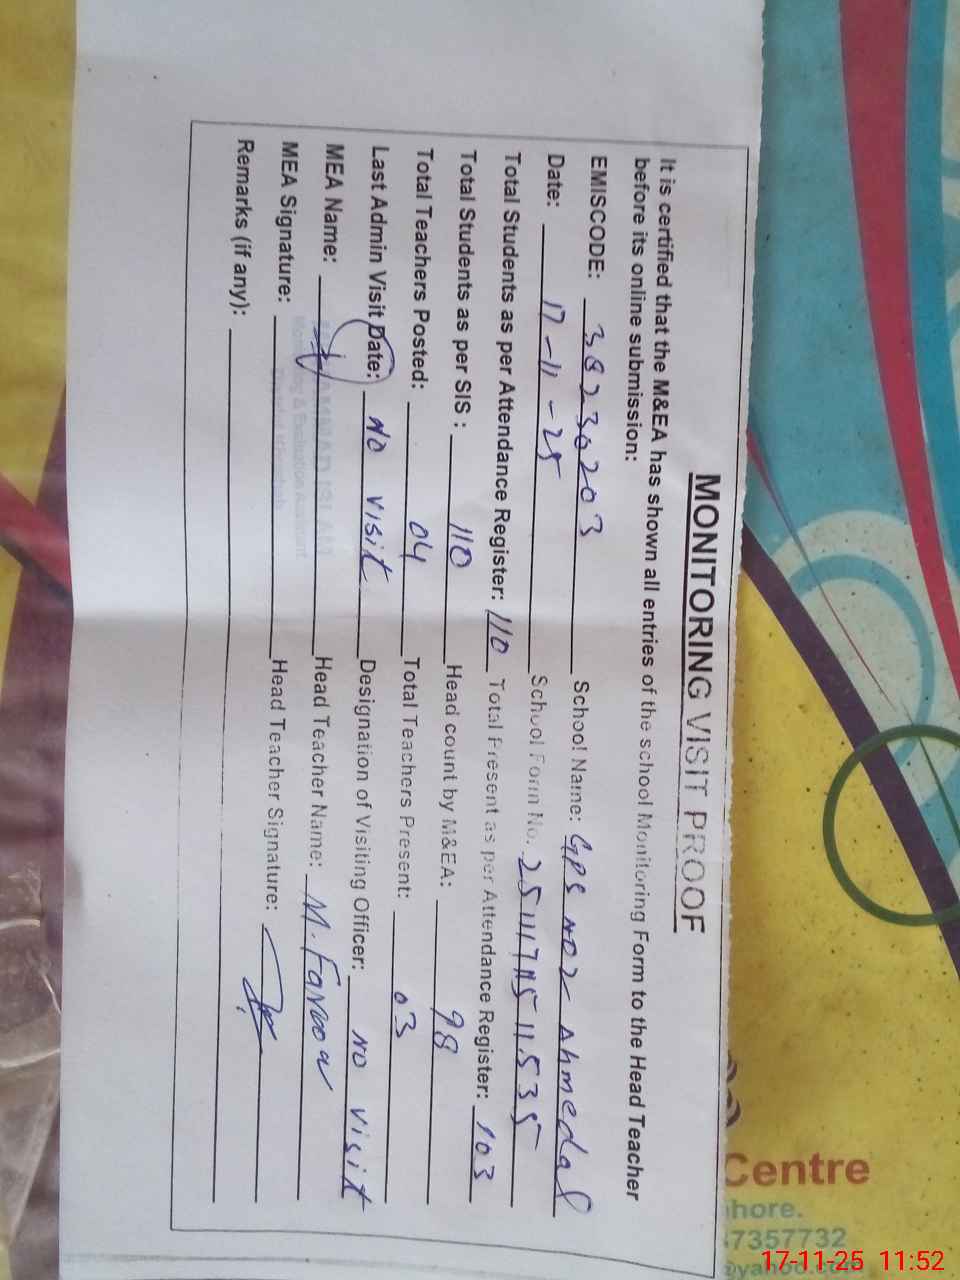 MONITORING VISIT PROOF
It is certified that the M&EA has shown all entries of the school Monitoring Form to the Head Teacher
before its online submission:
EMISCODE: 38230203 School Name: GPS NO2 Ahmedal
Date: 17-11-25 School Form No.
Total Students as per Attendance Register: 110 Total Present as per Attendance Register: 103
Total Students as per SIS : 110 Head count by M&EA: 98
Total Teachers Posted: 04 Total Teachers Present: 03
Last Admin Visit Date: NO visit Designation of Visiting Officer: NO visit
MEA Name: Head Teacher Name: M. Farooq
MEA Signature: Head Teacher Signature:
Remarks (if any):
Centre
hore.
7357732
17-11-25 11:52